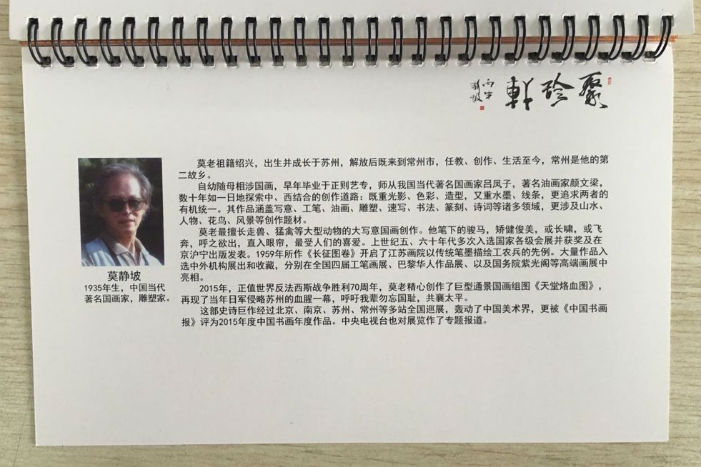 聚珍轩
莫老祖籍绍兴，出生并成长于苏州，解放后既来到常州市，任教、创作、生活至今，常州是他的第
二故乡。
自幼随母相涉国画，早年毕业于正则艺专，师从我国当代著名国画家吕凤子，著名油画家颜文梁，
数十年如一日地探索中、西结合的创作道路：既重光影、色彩、造型，又重水墨、线条，更追求两者的
有机统一。其作品涵盖写意、工笔、油画、雕塑、速写、书法、篆刻、诗词等诸多领域，更涉及山水、
人物、花鸟、风景等创作题材。
莫老最擅长走兽、猛禽等大型动物的大写意国画创作。他笔下的骏马，矫健俊美，或长啸，或飞
奔，呼之欲出，直入眼帘，最受人们的喜爱。上世纪五、六十年代多次入选国家各级会展并获奖及在
京沪宁出版发表。1959年所作《长征图卷》开启了江苏画院以传统笔墨描绘工农兵的先例。大量作品入
选中外机构展出和收藏，分别在全国四届工笔画展、巴黎华人作品展、以及国务院紫光阁等高端画展中
亮相。
2015年，正值世界反法西斯战争胜利70周年，莫老精心创作了巨型通景国画组图《天堂烙血图》，
再现了当年日军侵略苏州的血腥一幕，呼吁我辈勿忘国耻，共襄太平。
这部史诗巨作经过北京、南京、苏州、常州等多站全国巡展，轰动了中国美术界，更被《中国书画
报》评为2015年度中国书画年度作品。中央电视台也对展览作了专题报道。
莫静坡
1935年生，中国当代
著名国画家，雕塑家。